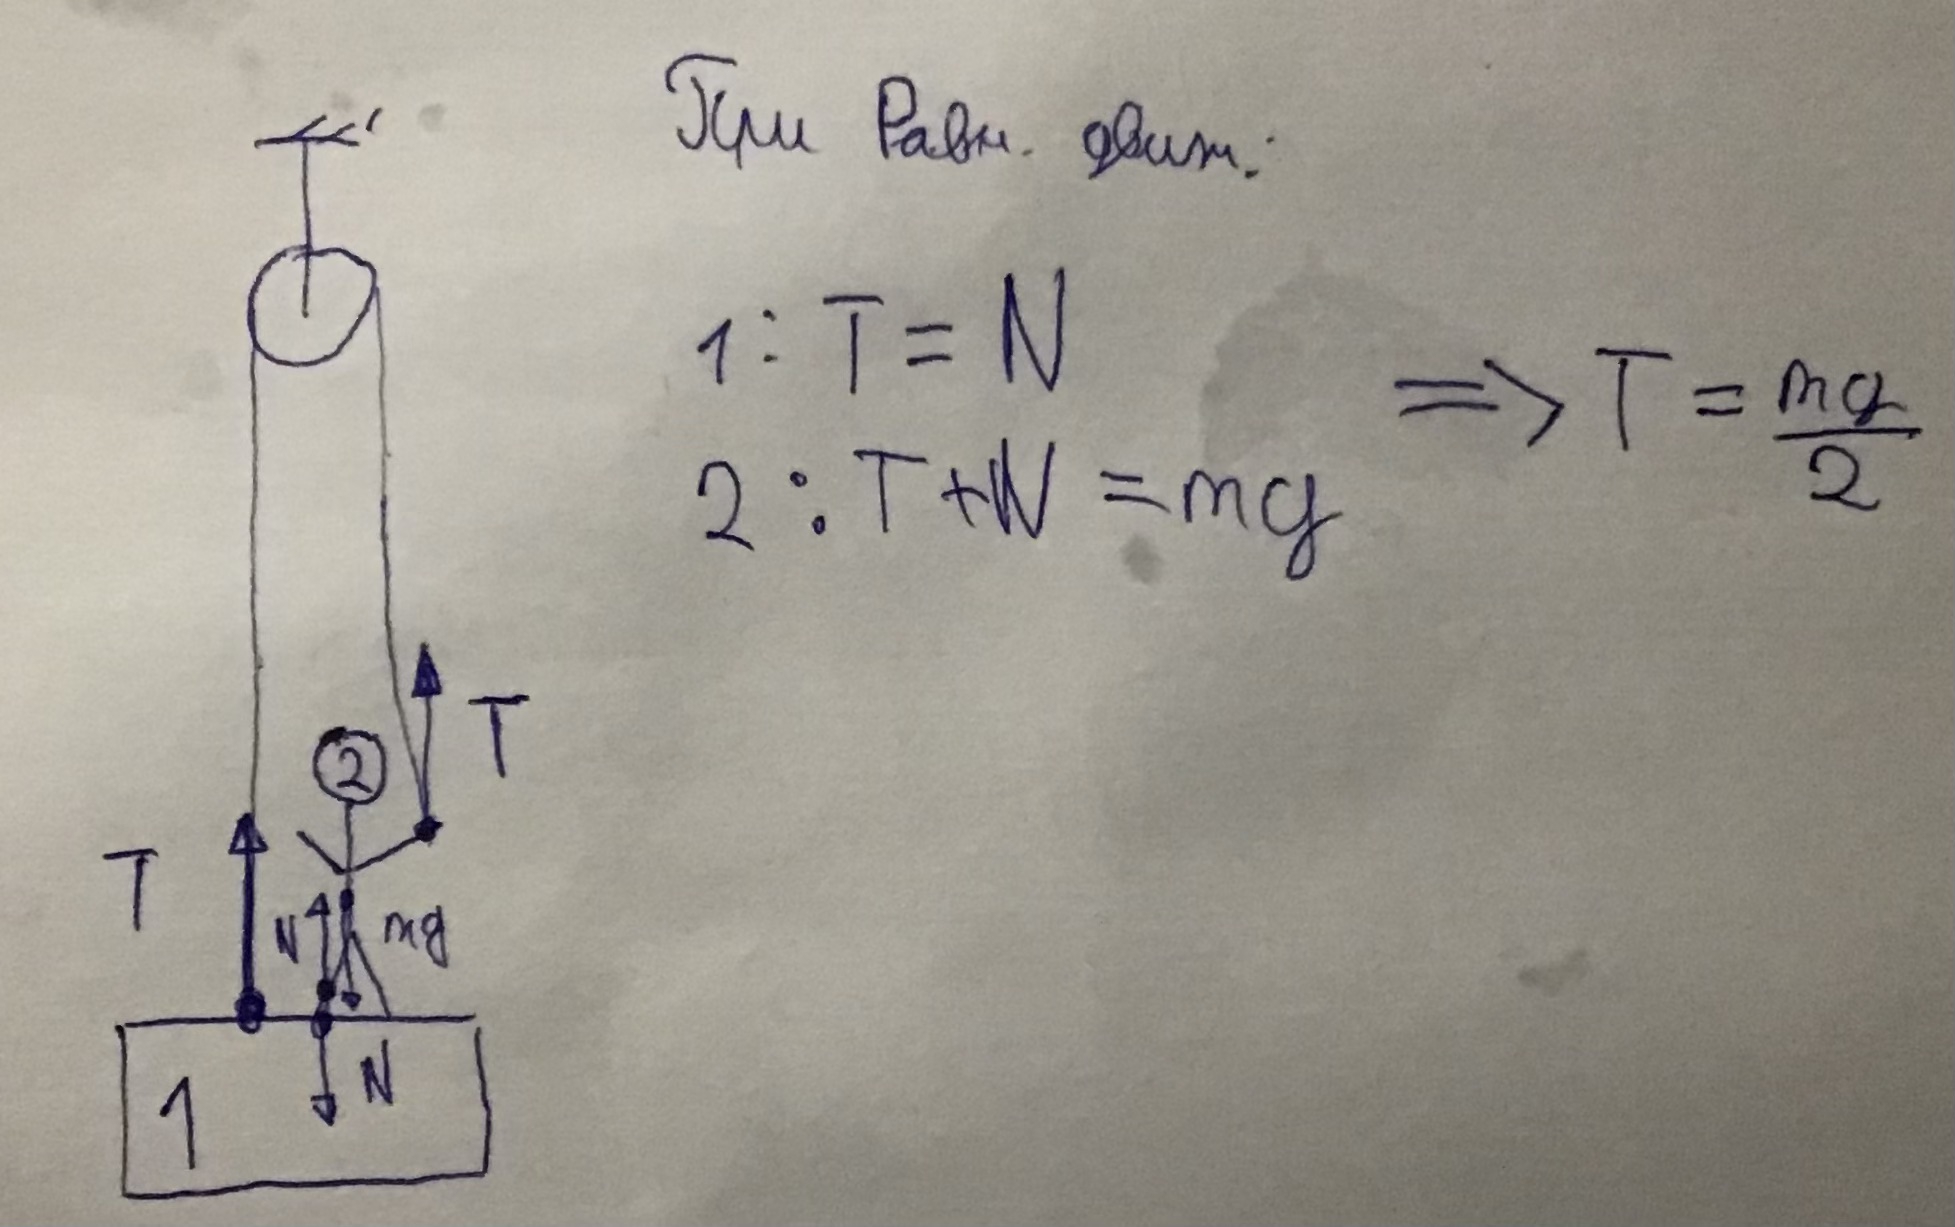 При Равн. движ.:
1: T = N
2: T+N = mg
=> T = mg/2
T
2
T
N
mg
N
1